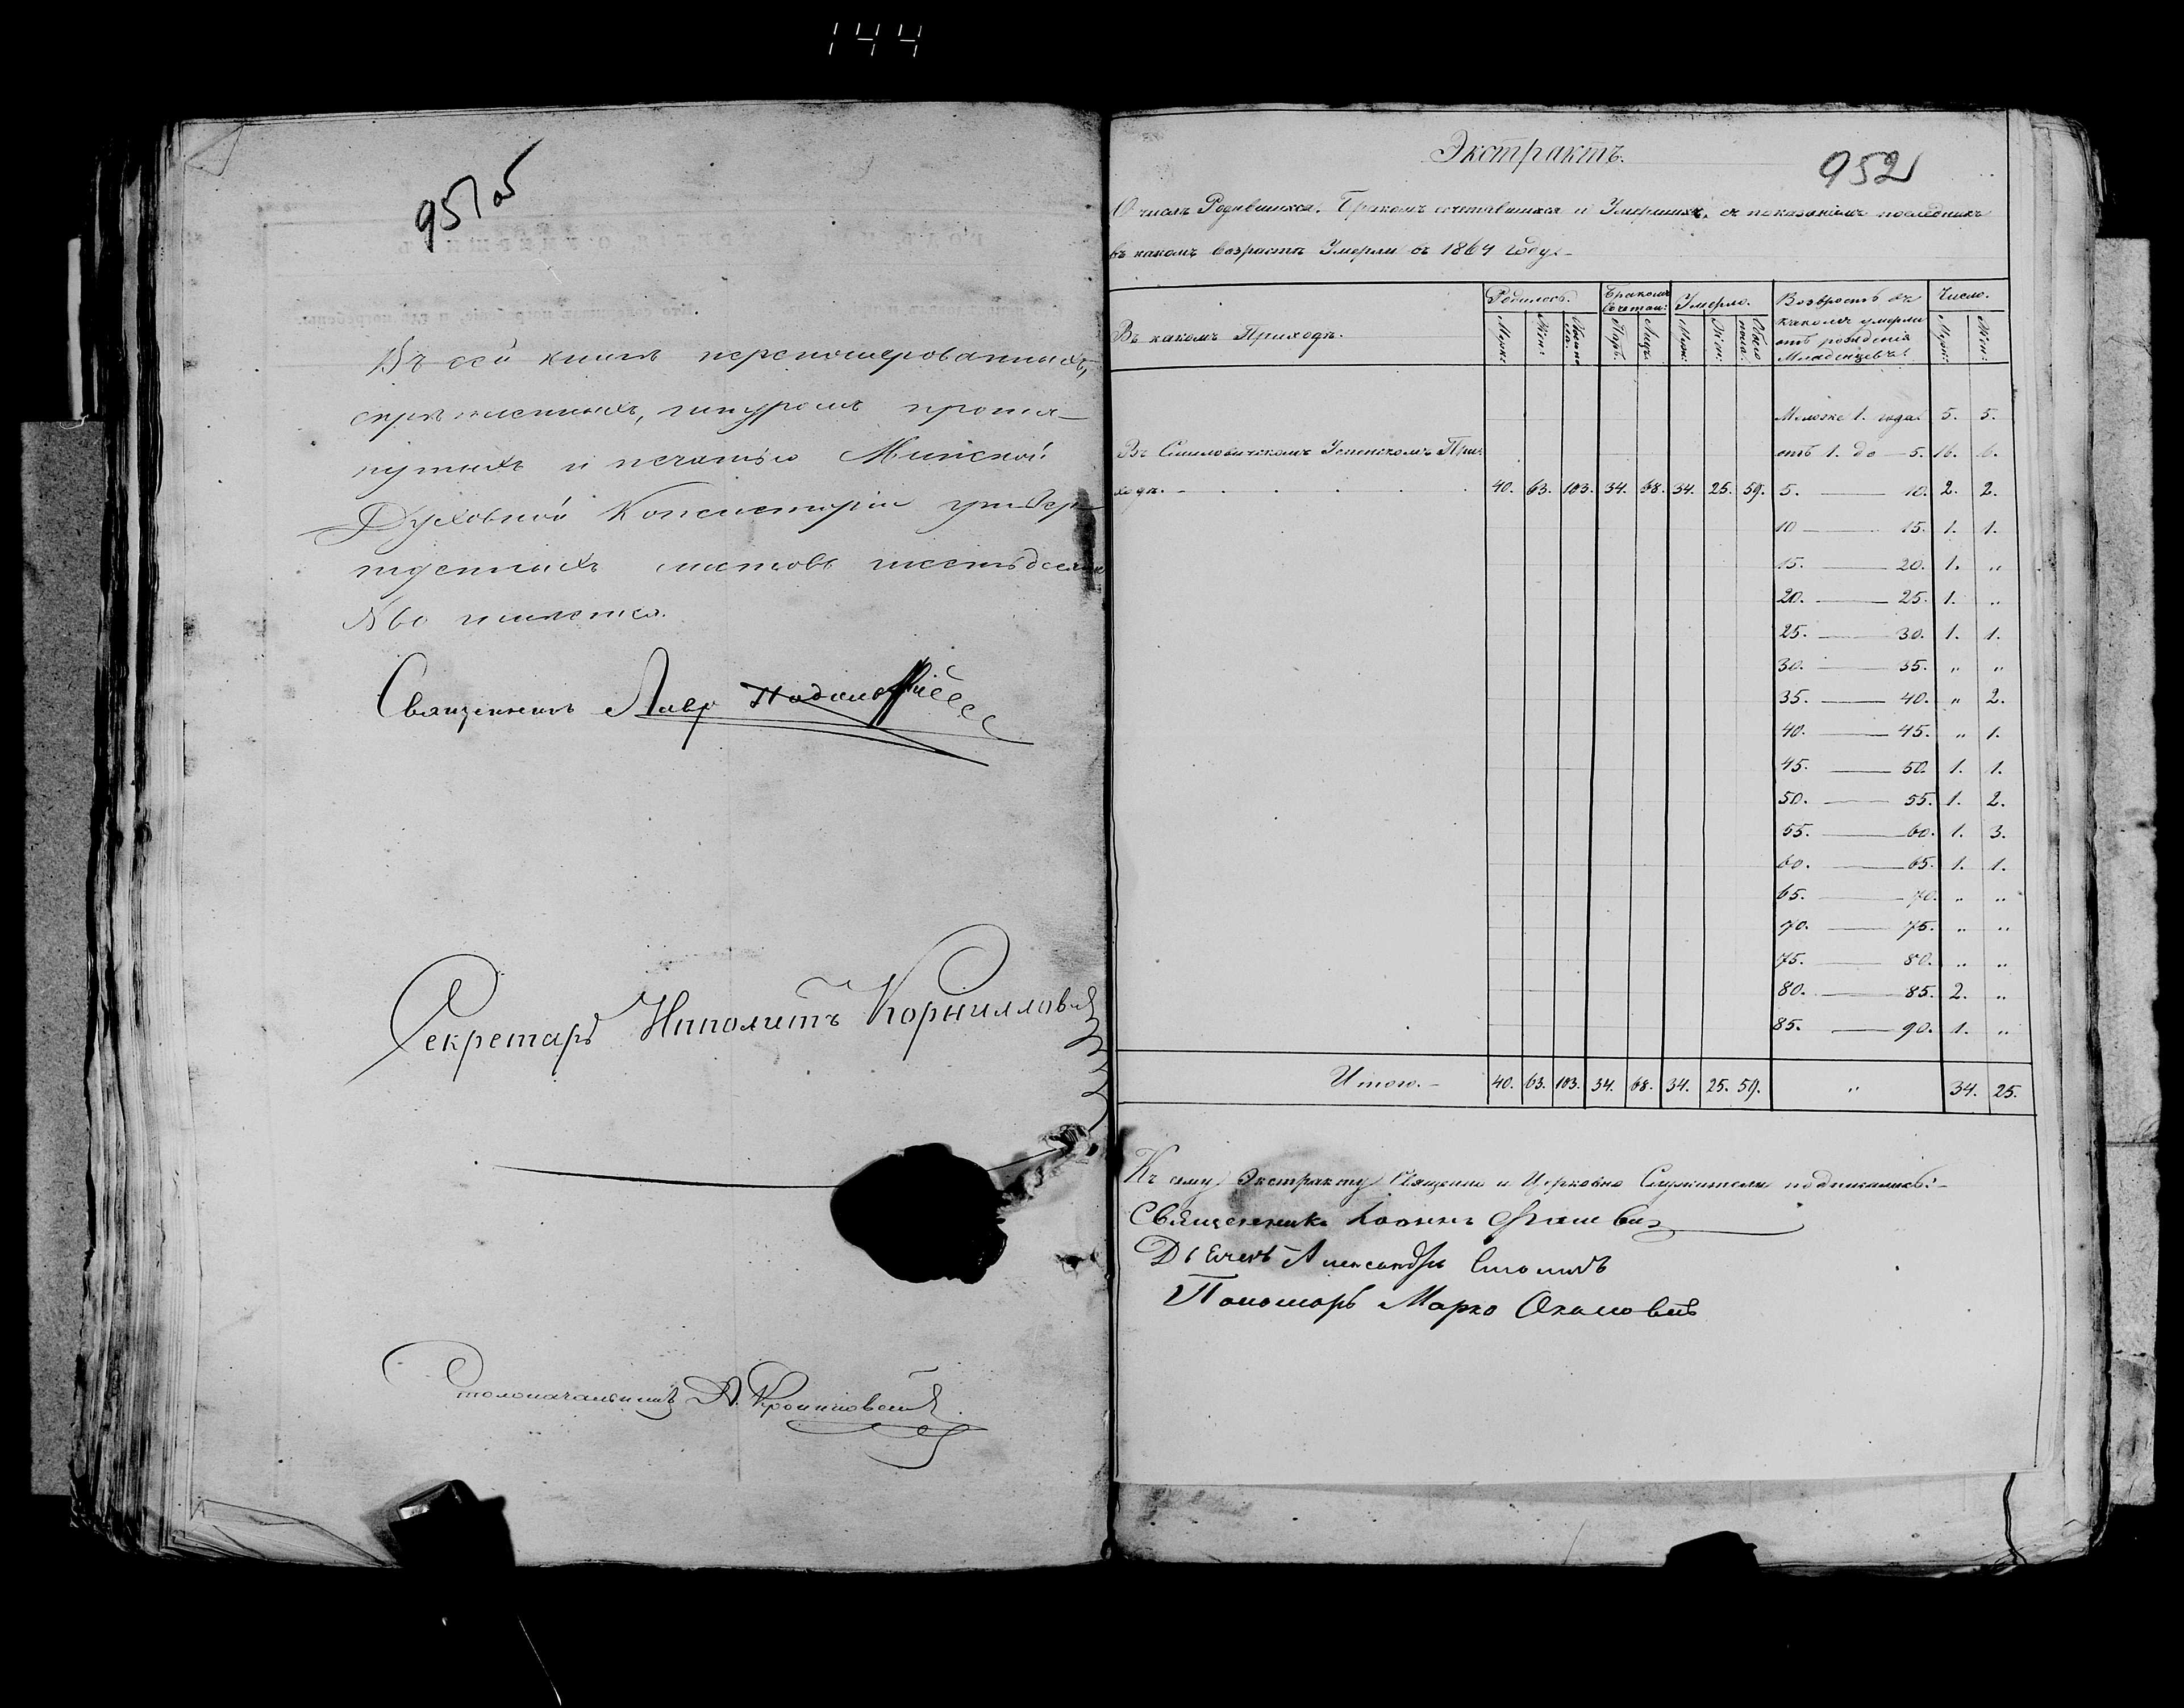 144
951об
Въ сей книгѣ перенумерованныхъ,
скрѣпленныхъ, шнуромъ протя-
нутыхъ и печатью Минской
Духовной Консисторіи утвер-
жденныхъ листовъ шестьдесятъ
№60 имѣется.
Священникъ Лавр
Секретарь Ипполитъ Корниллов
Столоначальникъ А.
Экстрактъ.
952
О числѣ Родившихся, Бракомъ сочетавшихся и Умершихъ, съ показаніемъ послѣднихъ
въ какомъ возрастѣ Умерли въ 1864 году.
Въ какомъ Приходѣ. Родилось. Бракомъ сочетан: Умерло. Возврастъ въ какомъ умерли отъ рожденія Младенцевъ. Число.
Муж: Жен: Обоего пола. Паръ. Лицъ. Муж: Жен: Обоего пола. Муж: Жен:
Моложе 1. года 5. 5.
Въ Смиловичскомъ Успенскомъ При-
отъ 1. до 5. 16. 6.
ходѣ.- 40. 63. 103. 34. 68. 34. 25. 59. 5. — 10. 2. 2.
10 — 15. 1. 1.
15. — 20. 1. "
20. — 25. 1. "
25. — 30. 1. 1.
30. — 35. " "
35. — 40. " 2.
40. — 45. " 1.
45. — 50. 1. 1.
50. — 55. 1. 2.
55. — 60. 1. 3.
60. — 65. 1. 1.
65. — 70. " "
70. — 75. " "
75. — 80. " "
80. — 85. 2. "
85. — 90. 1. "
Итого.- 40. 63. 103. 34. 68. 34. 25. 59. " 34. 25.
Къ сему Экстракту Священно и Церковно Служители подписались:-
Священникъ Іоаннъ
Дьячекъ Александръ
Пономарь Марко